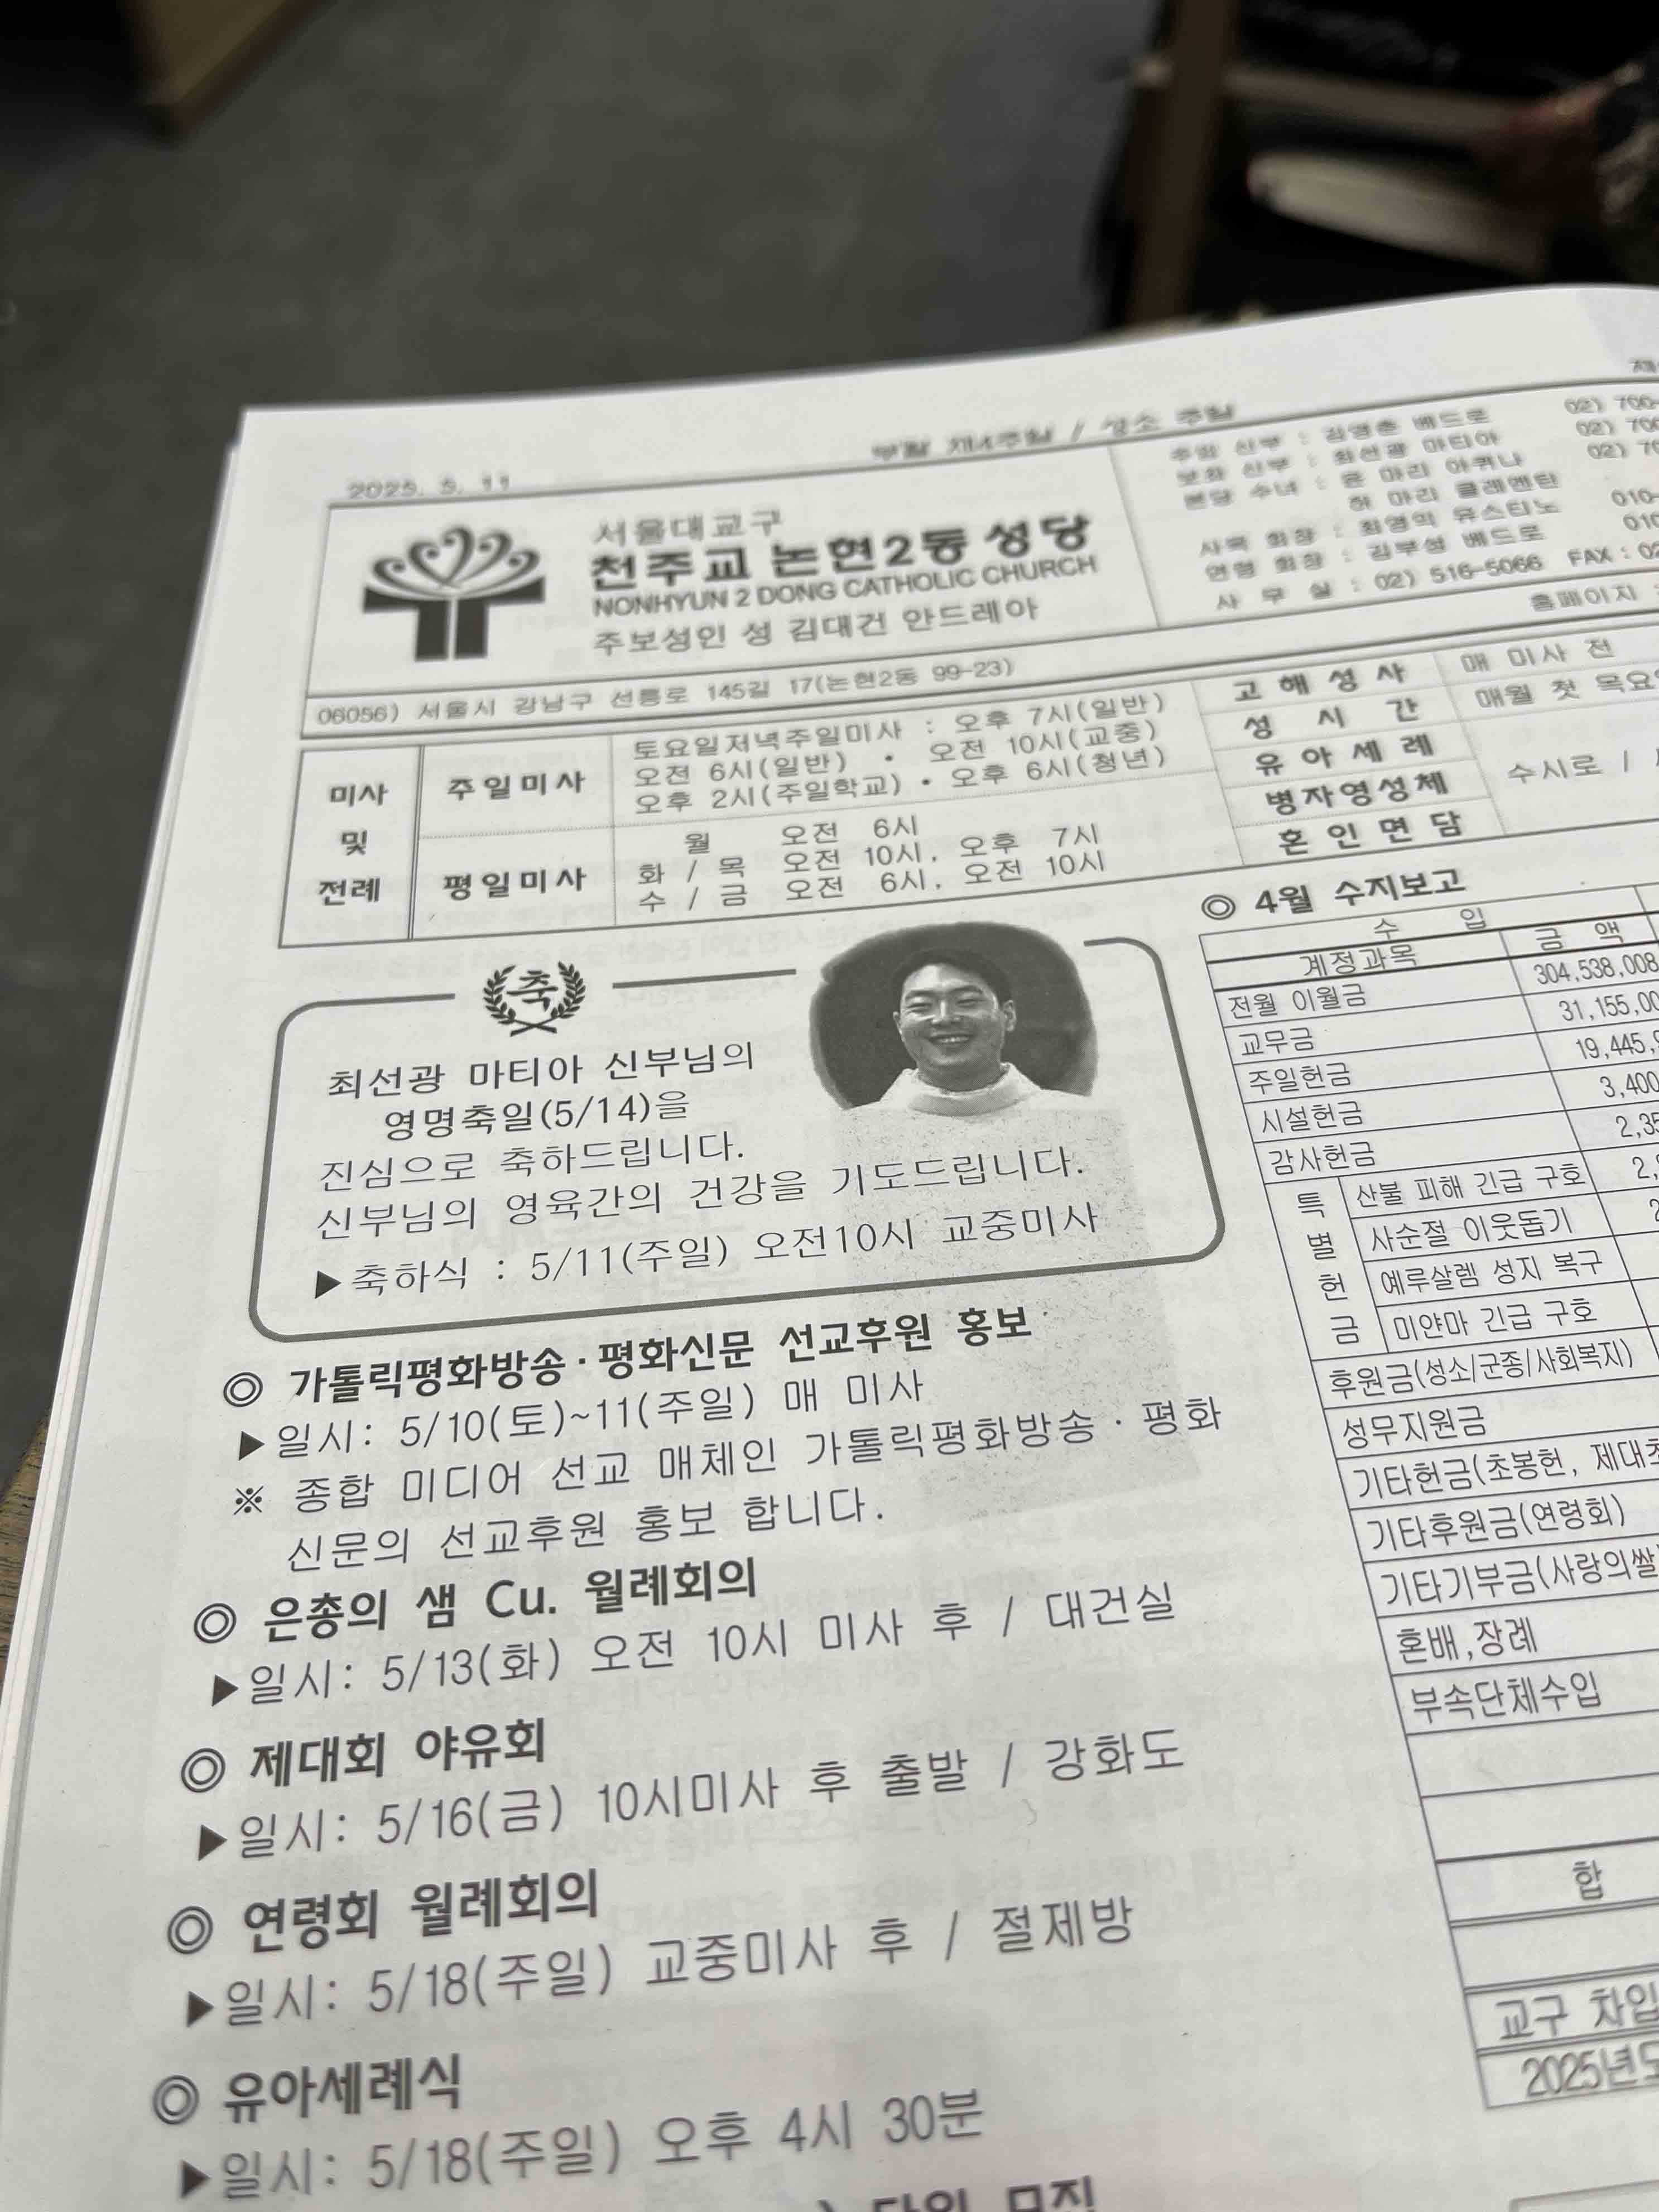 2025. 5. 11
부활 제4주일 / 성소 주일
서울대교구
천주교 논현2동 성당
NONHYUN 2 DONG CATHOLIC CHURCH
주보성인 성 김대건 안드레아
06056) 서울시 강남구 선릉로 145길 17(논현2동 99-23)
주임 신부 : 김영춘 베드로 02) 700-
보좌 신부 : 최선광 마티아 02) 700
본당 수녀 : 윤 마리 아퀴나 02) 70
허 마리 클레멘틴
사목 회장 : 최영익 유스티노 010-
연령 회장 : 김부성 베드로 010
사 무 실 : 02) 516-5066 FAX : 02
홈페이지
미사
및
전례
주일미사
토요일저녁주일미사 : 오후 7시(일반)
오전 6시(일반) • 오전 10시(교중)
오후 2시(주일학교) • 오후 6시(청년)
평일미사
월 오전 6시
화 / 목 오전 10시, 오후 7시
수 / 금 오전 6시, 오전 10시
고 해 성 사 매 미사 전
성 시 간 매월 첫 목요일
유 아 세 례
병자영성체 수시로 /
혼 인 면 담
축
최선광 마티아 신부님의
영명축일(5/14)을
진심으로 축하드립니다.
신부님의 영육간의 건강을 기도드립니다.
▶축하식 : 5/11(주일) 오전10시 교중미사
◎ 가톨릭평화방송·평화신문 선교후원 홍보
▶일시: 5/10(토)~11(주일) 매 미사
※ 종합 미디어 선교 매체인 가톨릭평화방송·평화
신문의 선교후원 홍보 합니다.
◎ 은총의 샘 Cu. 월례회의
▶일시: 5/13(화) 오전 10시 미사 후 / 대건실
◎ 제대회 야유회
▶일시: 5/16(금) 10시미사 후 출발 / 강화도
◎ 연령회 월례회의
▶일시: 5/18(주일) 교중미사 후 / 절제방
◎ 유아세례식
▶일시: 5/18(주일) 오후 4시 30분
단원 모집
◎ 4월 수지보고
수 입
계정과목 금 액
전월 이월금 304,538,008
교무금 31,155,00
주일헌금 19,445,
시설헌금 3,400
감사헌금 2,35
특별헌금
산불 피해 긴급 구호 2,
사순절 이웃돕기 2
예루살렘 성지 복구
미얀마 긴급 구호
후원금(성소/군종/사회복지)
성무지원금
기타헌금(초봉헌, 제대초
기타후원금(연령회)
기타기부금(사랑의쌀
혼배,장례
부속단체수입
합
교구 차입
2025년도